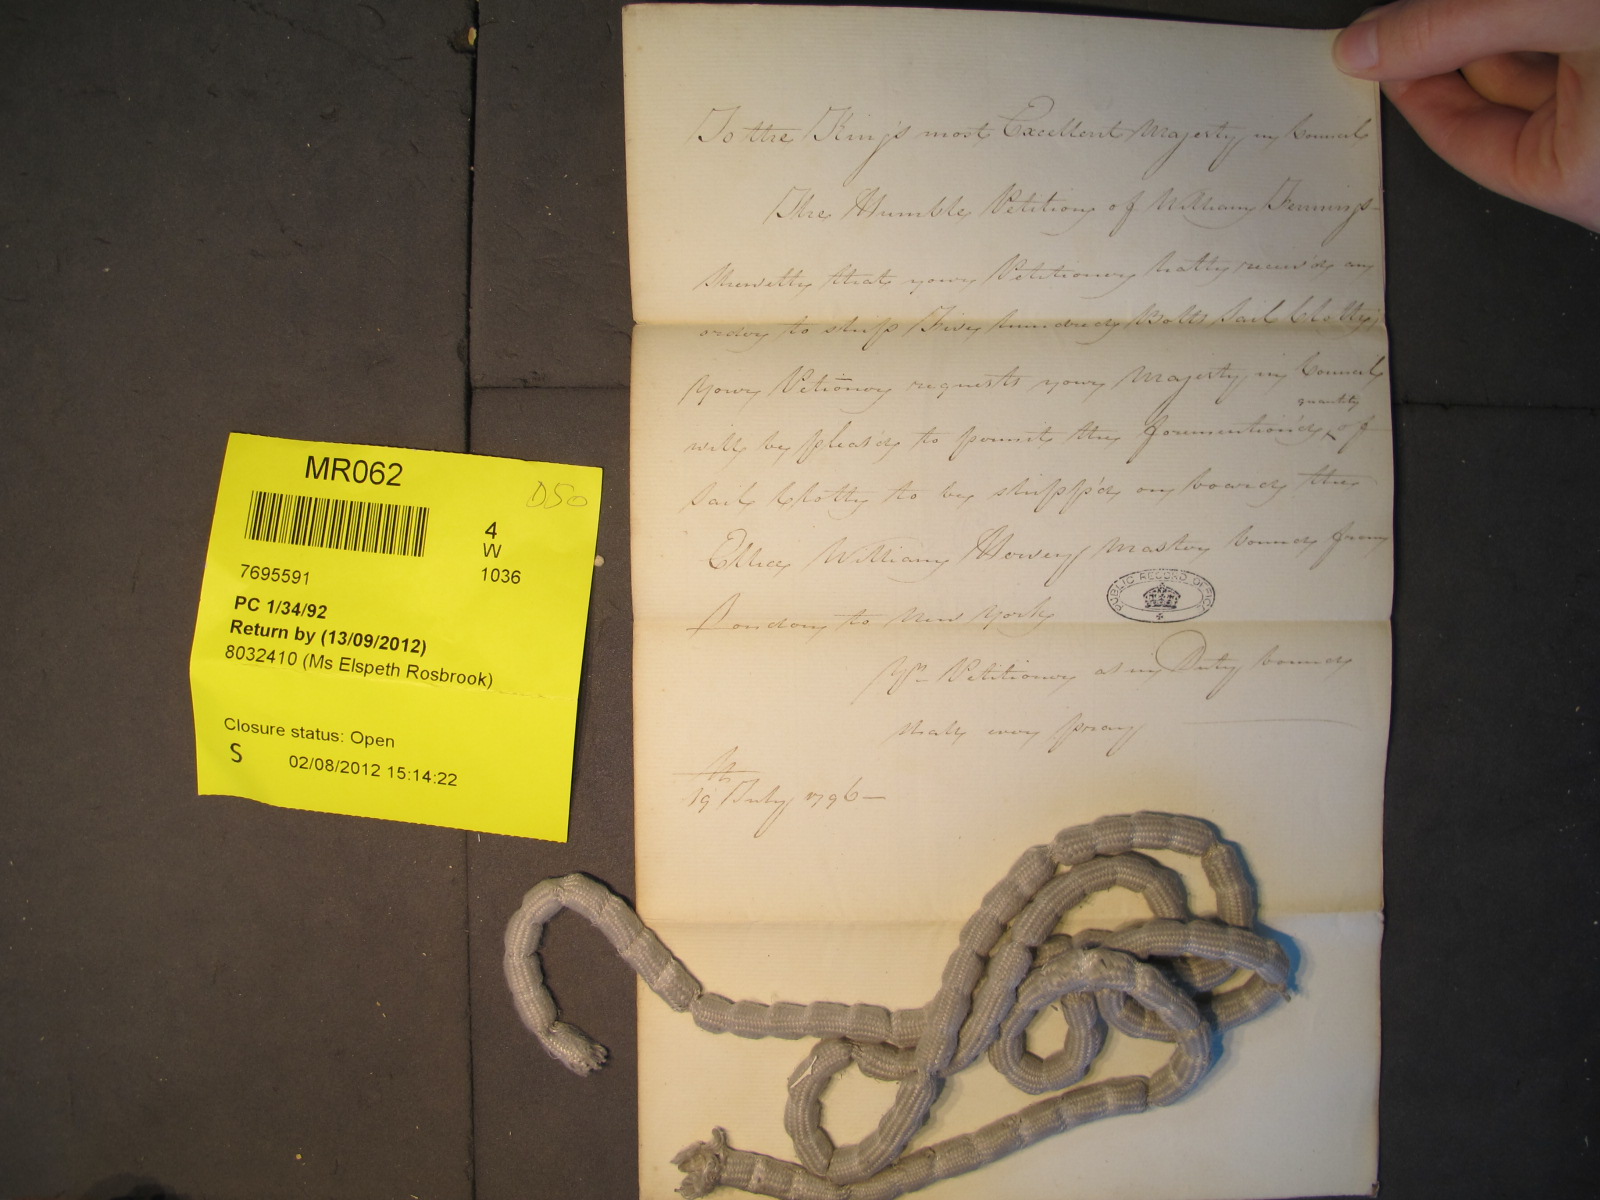 To the King's most Excellent Majesty in Council
The Humble Petition of William Jennings
Sheweth that your Petitioner hath receiv'd an
order to ship Five hundred Bolts Sail Cloth,
Your Petitioner requests your Majesty in Council
quantity
will be pleas'd to permit the forementiond of
Sail Cloth to be shipp'd on board the
William Howey Master bound from
London to New York
Yr Petitioner as in Duty bound
shall ever pray
19th July 1796
PUBLIC RECORD OFFICE
MR062
D50
4
W
1036
7695591
PC 1/34/92
Return by (13/09/2012)
8032410 (Ms Elspeth Rosbrook)
Closure status: Open
S
02/08/2012 15:14:22